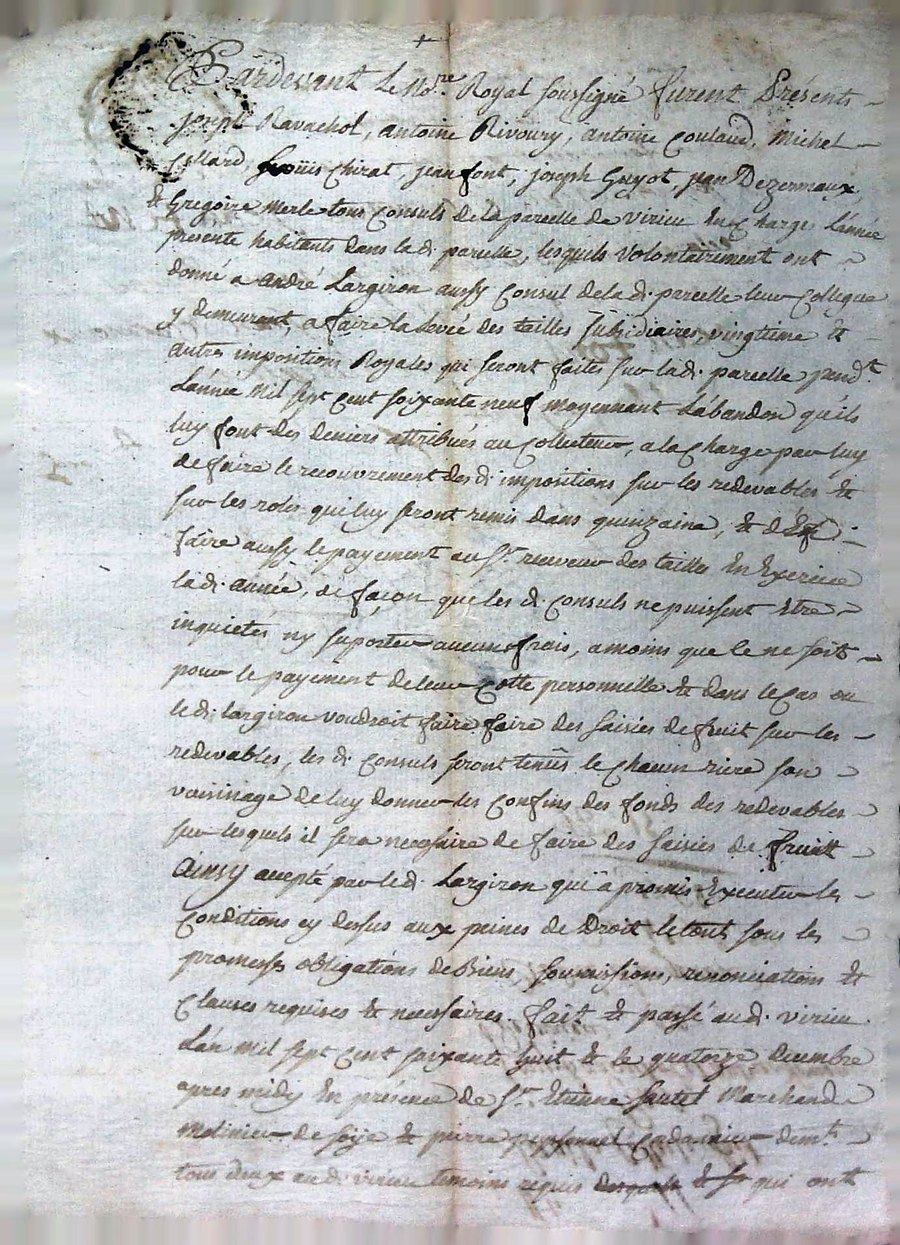 Pardevant Le No.re Royal soussigné furent Présents
joseph Ravachol, antoine Rivoury, antoine Coulaud, Michel
Collard, Louïs Chirat, jean font, joseph Guyot, jean Dezermaux,
& Gregoire Merle tous Consuls de la parcelle de virieu En Charge L'année
présente habitants dans la d. parcelle, lesquels Volontairement ont
donné a andré Largiron aussy Consul de la d. parcelle leur Collegue
y demeurant, a faire la levée des tailles subsidiaires, vingtieme &
autres impositions Royales qui seront faites sur la d. parcelle pend.t
L'année Mil sept cent soixante neuf moyennant L'abandon qu'ils
luy font des deniers attribués au Collecteur, a la Charge par luy
de faire le recouvrement des d. impositions sur les redevables &
sur les roles qui luy seront remis dans quinzaine, & d'En
faire aussy le payement au S.r receveur des tailles En Exercice
la d. année, de façon que les d. Consuls ne puissent Etre
inquietés ny suporter aucuns frais, a moins que Ce ne soit
pour le payement de leur Cotte personnelle & dans le Cas ou
le d. largiron voudroit faire faire des saisies de fruit sur les
redevables, les d. Consuls seront tenûs Chacun riere son
voisinage de luy donner les Confins des fonds des redevables
sur lesquels il sera necessaire de faire des saisies de fruit
Ainsy accepté par le d. Largiron qui a promis Executer les
Conditions cy dessus aux peines de Droit le tout sous les
promesses obligations de Biens, soumissions, renonciations &
Clauses requises & necessaires. fait & passé au d. virieu
L'an Mil sept Cent soixante huit & le quatorze decembre
apres midy En présence de S.r Etienne Marchand
Molinier de soÿe & pierre dem.t
tous deux au d. virieu temoins requis & qui ont